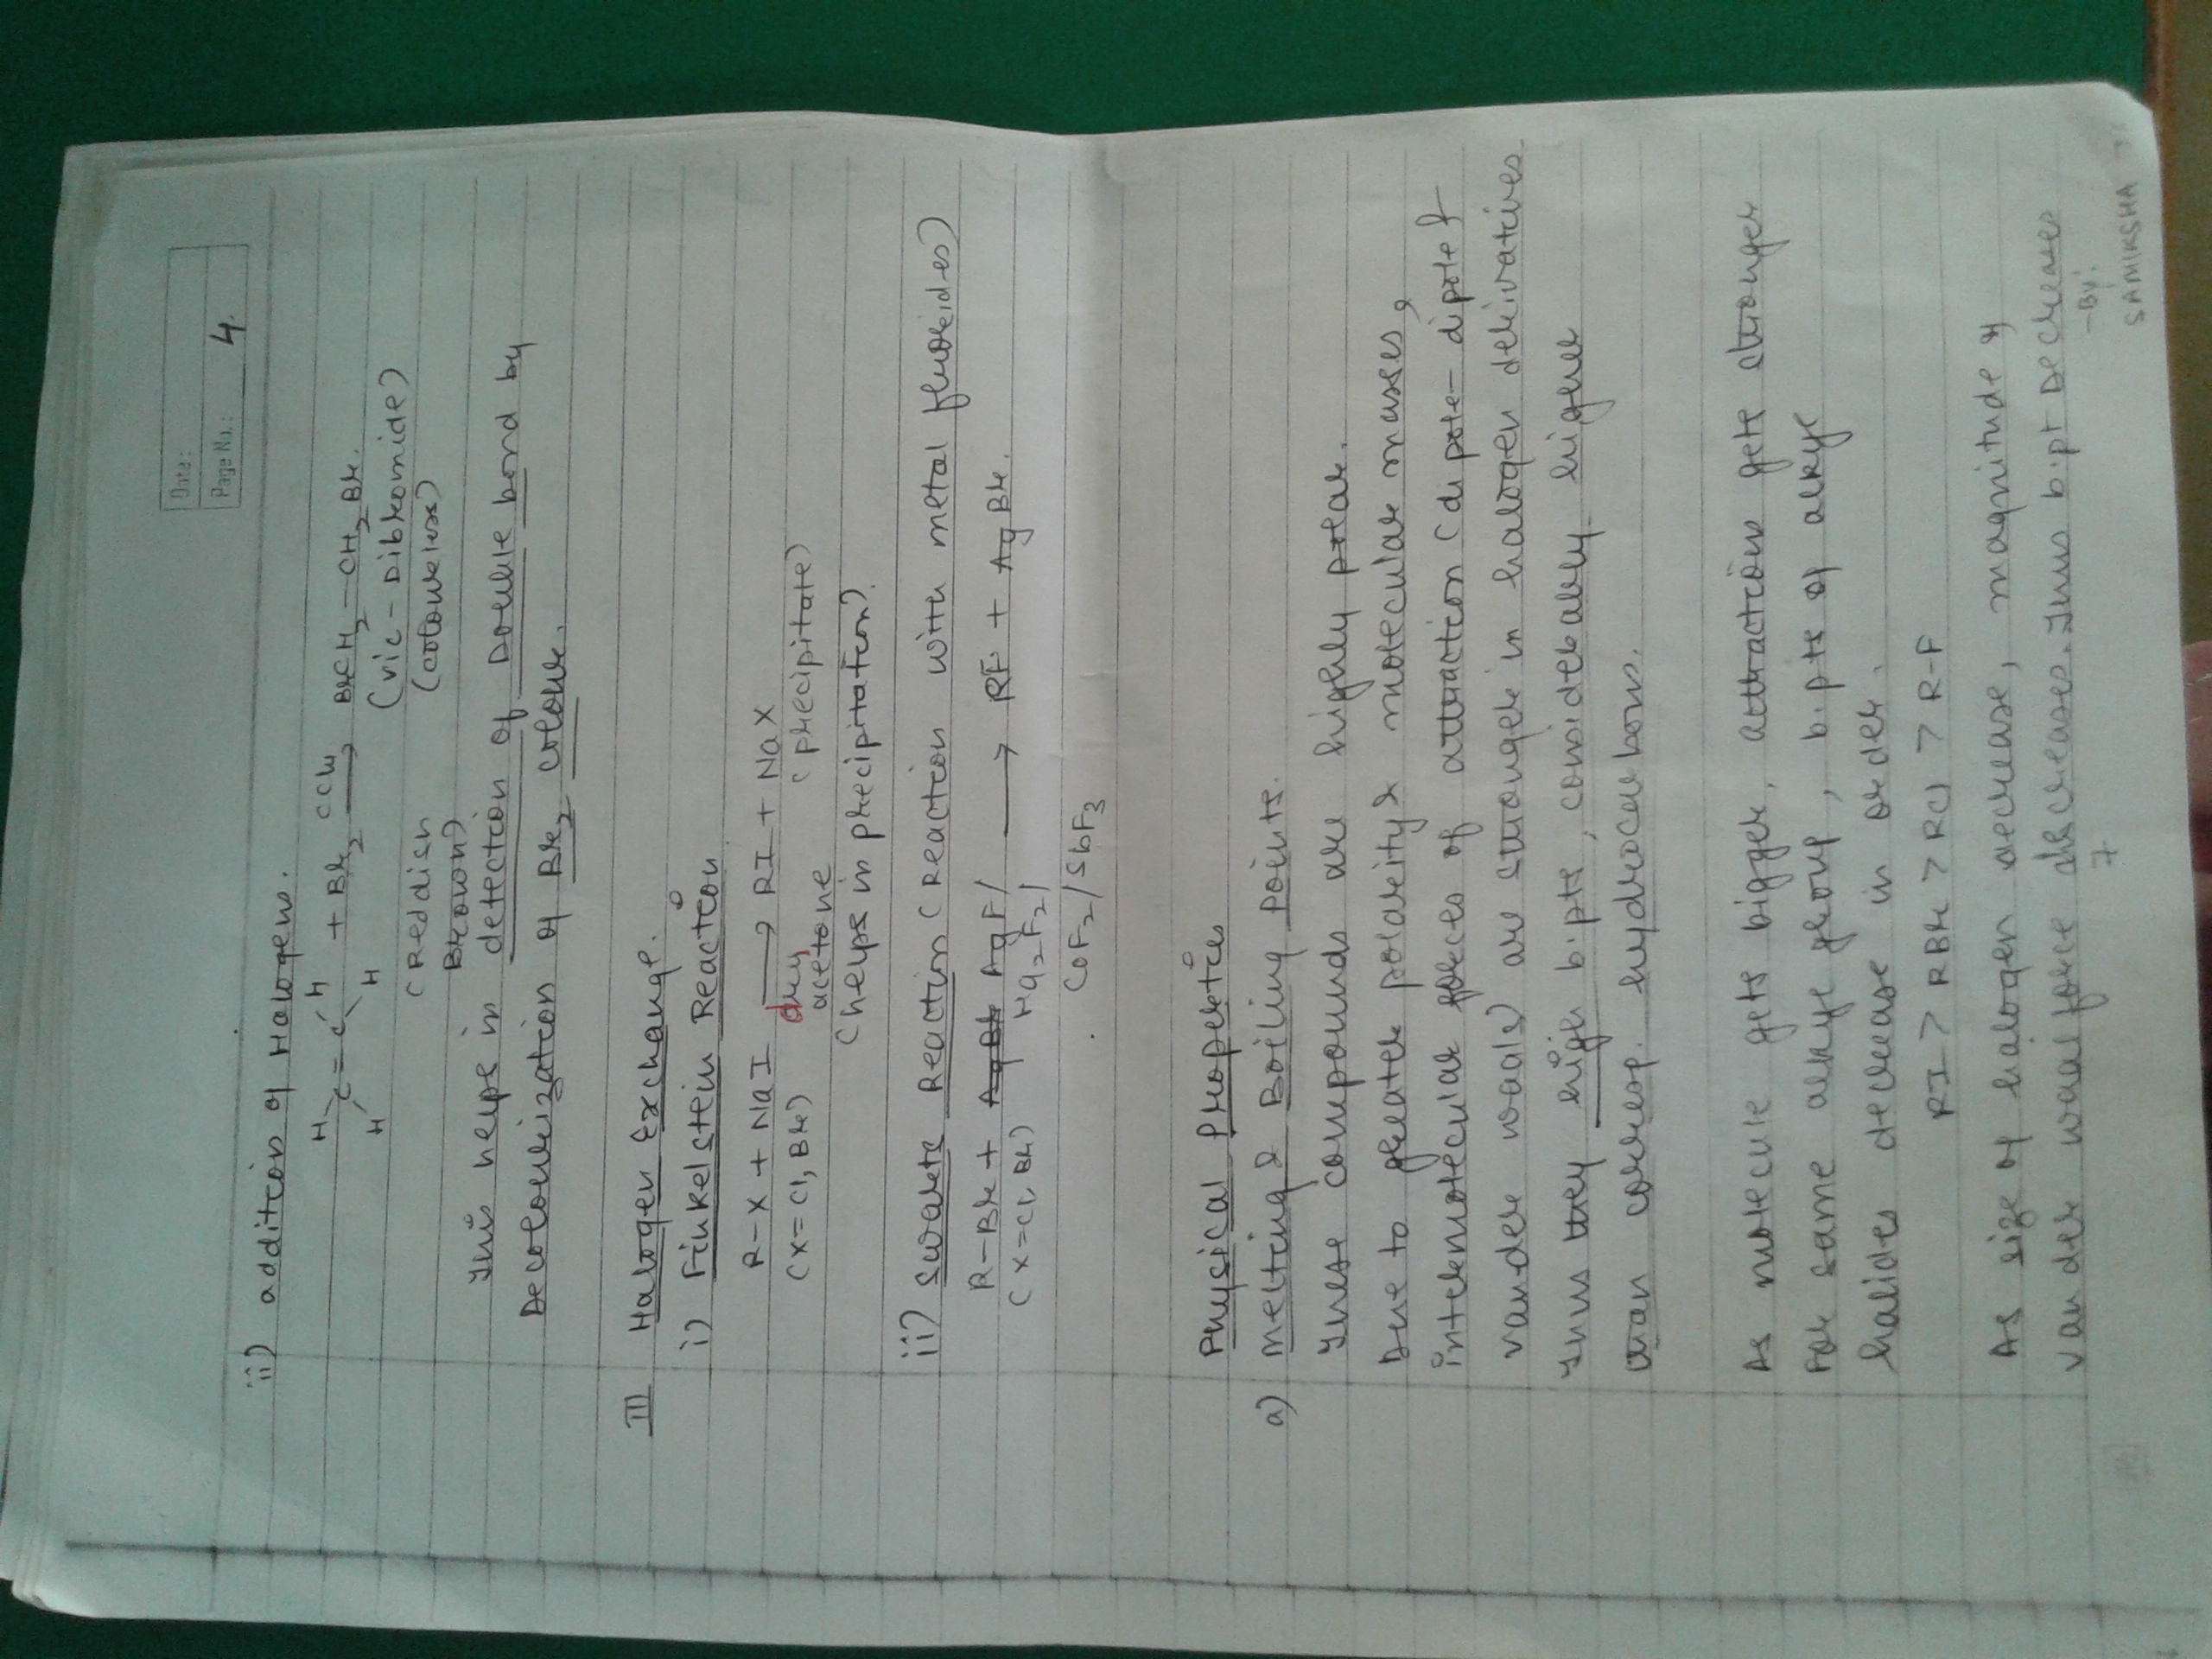 Date:
Page No.: 4.
ii) addition of Halogens.
H H
C = C + Br2 CCl4 → BrCH2-CH2Br.
H H
(Reddish Brown)
(vic-Dibromide)
(colourless)
This helps in detection of Double bond by
Decolourization of Br2 colour.
III Halogen Exchange.
i) Finkelstein Reaction
R-X + NaI → RI + NaX
(X=Cl, Br) dry acetone (precipitate)
(helps in precipitation)
ii) Swarts Reaction (Reaction with metal fluorides)
R-Br + AgBr AgF/ → RF + AgBr.
(X=Cl, Br) Hg2F2/
CoF2/SbF3
Physical Properties
a) Melting & Boiling Points.
These compounds are highly polar.
Due to greater polarity & molecular masses,
intermolecular forces of attraction (dipole-dipole &
vander waals) are stronger in halogen derivatives
Thus they high b.pts, considerably higher
than corresp. hydrocarbons.
As molecule gets bigger, attractions gets stronger
For same alkyl group, b.pts of alkyl
halides decrease in order.
RI > RBr > RCl > R-F
As size of halogen decrease, magnitude of
van der waal force decreases. Thus b.pt Decreases
7
-By:
SAMIKSHA